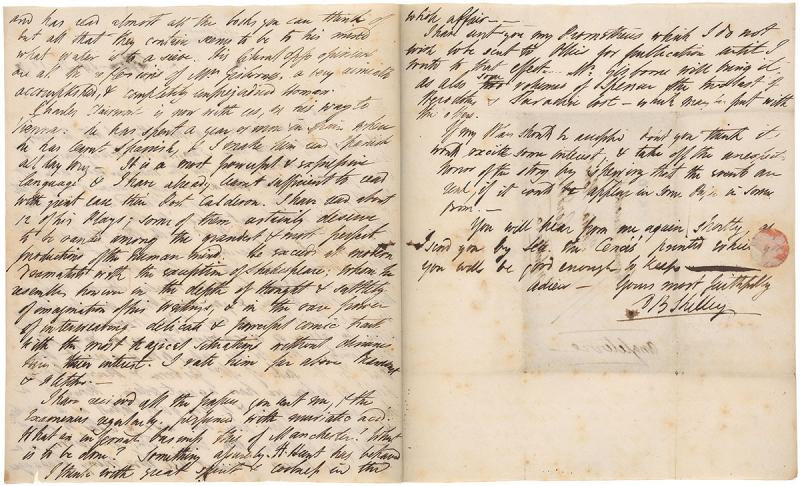 and has read almost all the books you can think of
but all that they contain seems to be to his mind
what water is to a sieve. His liberal opinions
are all the of Mrs Gisborne, a very amiable
accomplished, & completely unprejudiced woman
Charles Clairmont is now with us, on his way to
Vienna. He has spent a year or more in Spain where
he has learnt Spanish, & I make him read Spanish
all day long. It is a most powerful & expressive
language & I have already learnt sufficient to read
with great ease their Poet Calderon. I have read about
12 of his Plays; some of them certainly deserve
to be ranked among the grandest & most perfect
productions of the human mind. He exceeds all modern
Dramatists with the exception of Shakespeare; whom he
resembles however in the depth of thought & subtlety
of imagination of his writings, & in the rare power
of interweaving delicate & powerful comic traits
with the most tragical situations without diminishing
their interest. I rate him far above Beaumont
& Fletcher.—
I have received all the papers you sent me, & the
Examiners regularly, perfumed with muriatic acid.
What an infernal business this of Manchester! What
is to be done? Something assuredly. H. Hunt has behaved
I think with great spirit & coolness in the
whole affair.—
I have sent you my Prometheus which I do not
wish to be sent to Ollier for publication until I
write to that effect. Mr. Gisborne will bring it
as also some volumes of Spenser & the two last of
Herodotus & Paradise Lost — which may be put with
the others.
If my Play should be accepted dont you think it
would excite some interest, & take off the unexpected
horror of the story by shewing that the events are
real, if it could appear in some Paper in some
form.—
You will hear from me again shortly, as
I send you by sea the Cencis printed which
you will be good enough to keep
Adieu — Yours most faithfully
P B Shelley